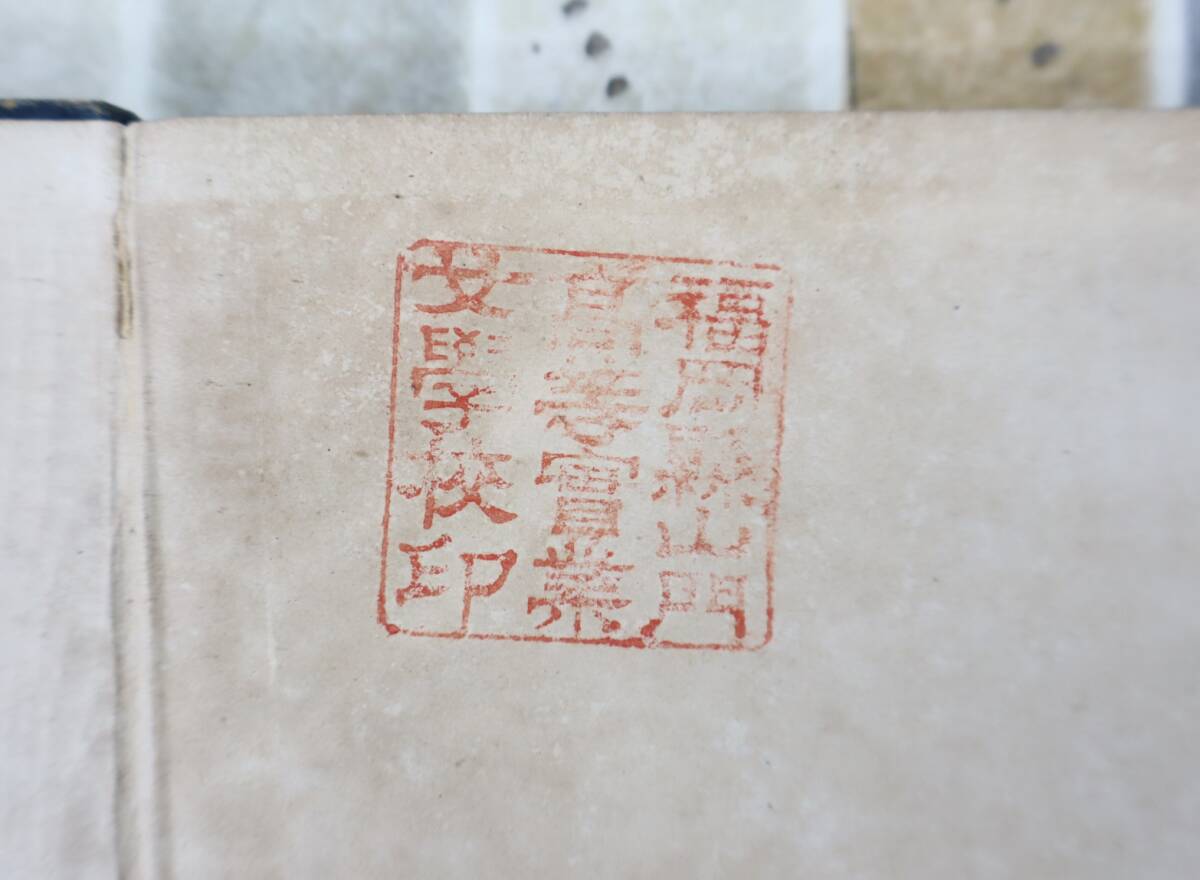 福岡縣山門
高等實業
女學校印